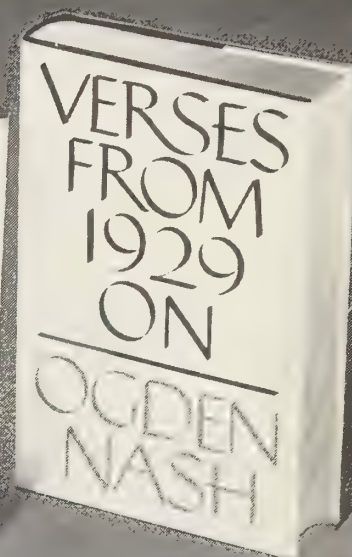 VERSES
FROM
1929
ON
OGDEN
NASH